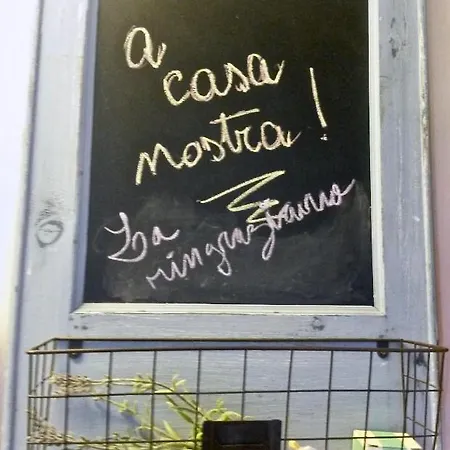 a
casa
nostra!
La
ringraziamo